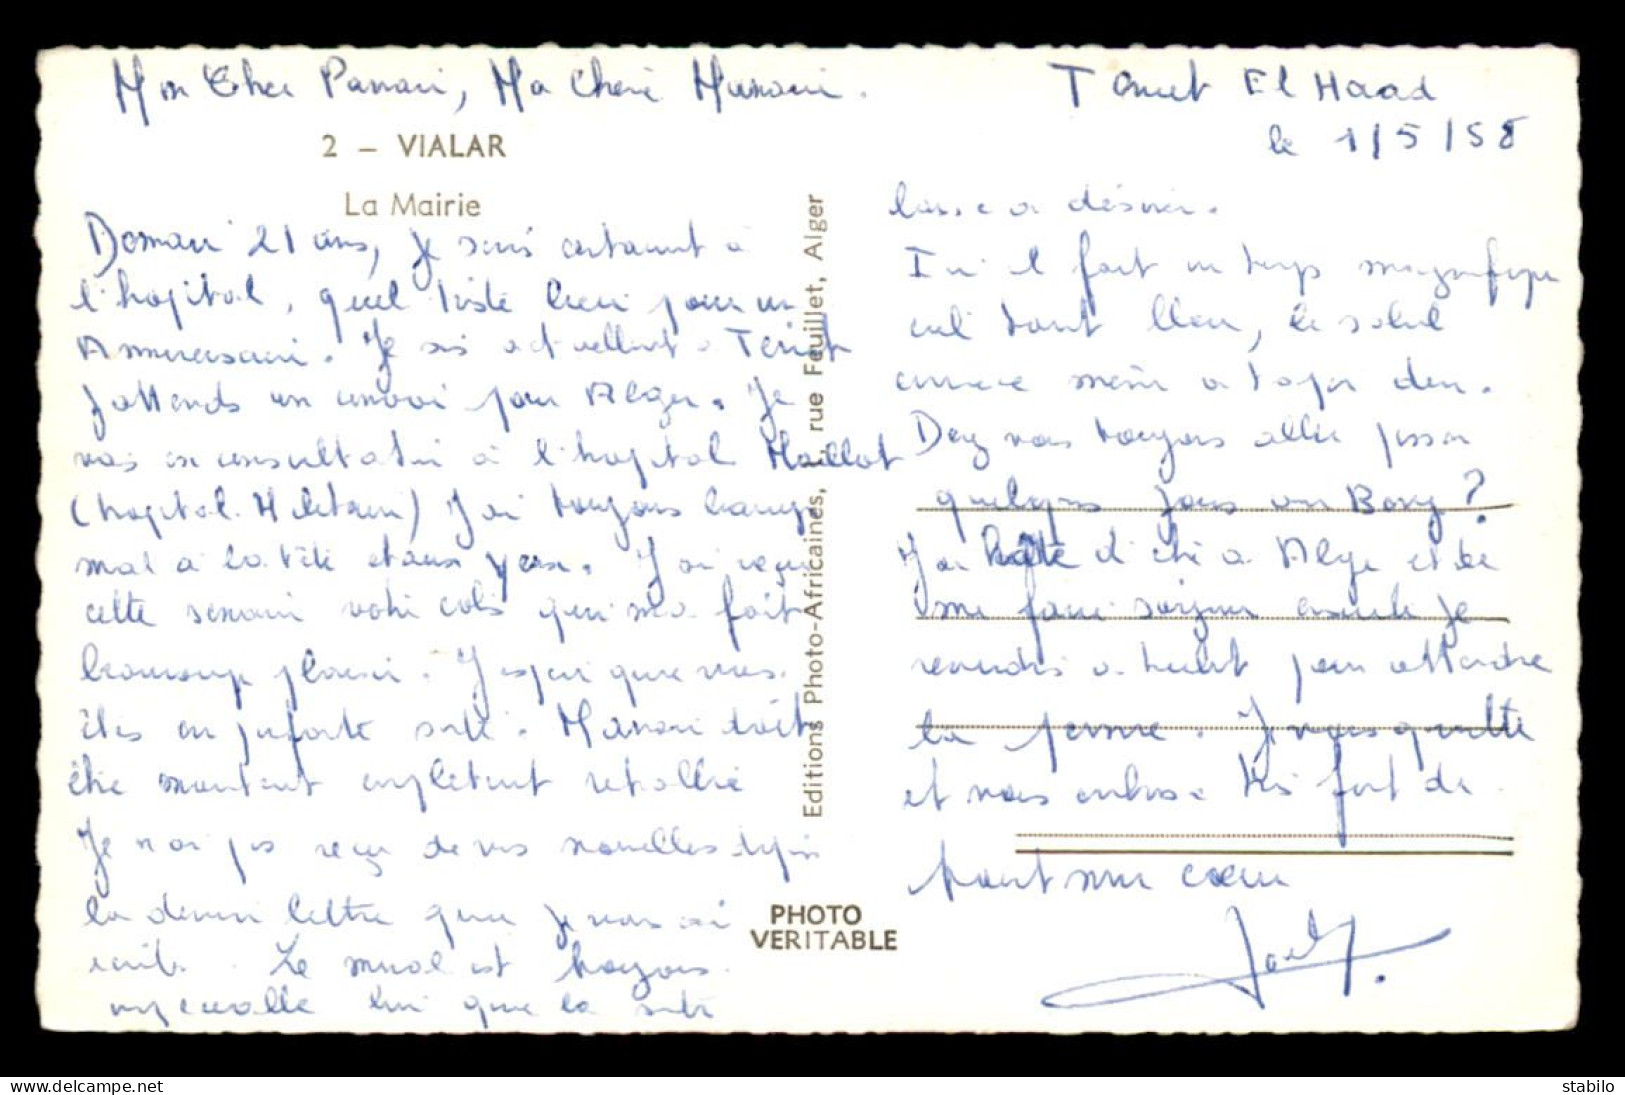 Mon Cher Papa, Ma Chère Maman.
Teniet El Haad
le 1/5/58
2 – VIALAR
La Mairie
Demain 21 ans, je serai certainement à
l'hopital, quel triste lieu pour un
Anniversaire. Je suis actuellement à Teniet
J'attends un convoi pour Alger. Je
vais en consultation à l'hopital Maillot
(hopital Militaire) J'ai toujours
mal à la tête et aux yeux. J'ai reçu
cette semaine votre colis qui m'a fait
beaucoup plaisir. J'espère que vous
êtes en parfaite santé. Maman doit
être maintenant complètement retablie
Je n'ai pas reçu de vos nouvelles depuis
la dernière lettre que je vous ai
écrite. Le moral est toujours
que la santé
laisse a désirer.
Ici il fait un temps magnifique
ciel tout bleu, le soleil
commence même a taper dur.
Devez vous toujours aller passer
quelques jours au Bosc ?
J'ai hâte d'être a Alger et de
me faire soigner ensuite je
reviendrai a Teniet pour attendre
la perme. Je vous quitte
et vous embrasse très fort de
tout mon coeur
Editions Photo-Africaines, rue Feuillet, Alger
PHOTO
VERITABLE
www.delcampe.net
stabilo